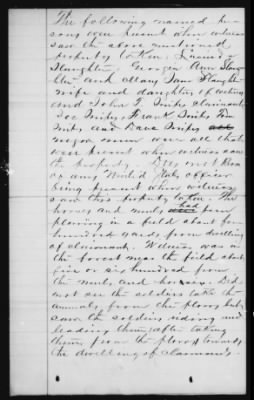 The following named per-
sons were present when witness
saw the above mentioned
property taken.
Slaughter, Georgia Ann Slaugh-
ter and Mary Jane Slaughter
wife and daughters of witness
and John T. Snipes claimant.
Joe Snipes, Frank Snipes Tom
Snipes and Dave Snipes
negro men were all that
were present when witness saw
the property. Does not know
of any United States officer
being present when witness
saw this property taken. The
horses and mules had been
plowing in a field about four
hundred yards from dwelling
of claimant. Witness was in
the forest near the field about
five or six hundred from
the mules and horses. Did
not see the soldiers take the
animals from the plows but
saw the soldiers riding and
leading them after taking
them from the plows towards
the dwelling of claimant.